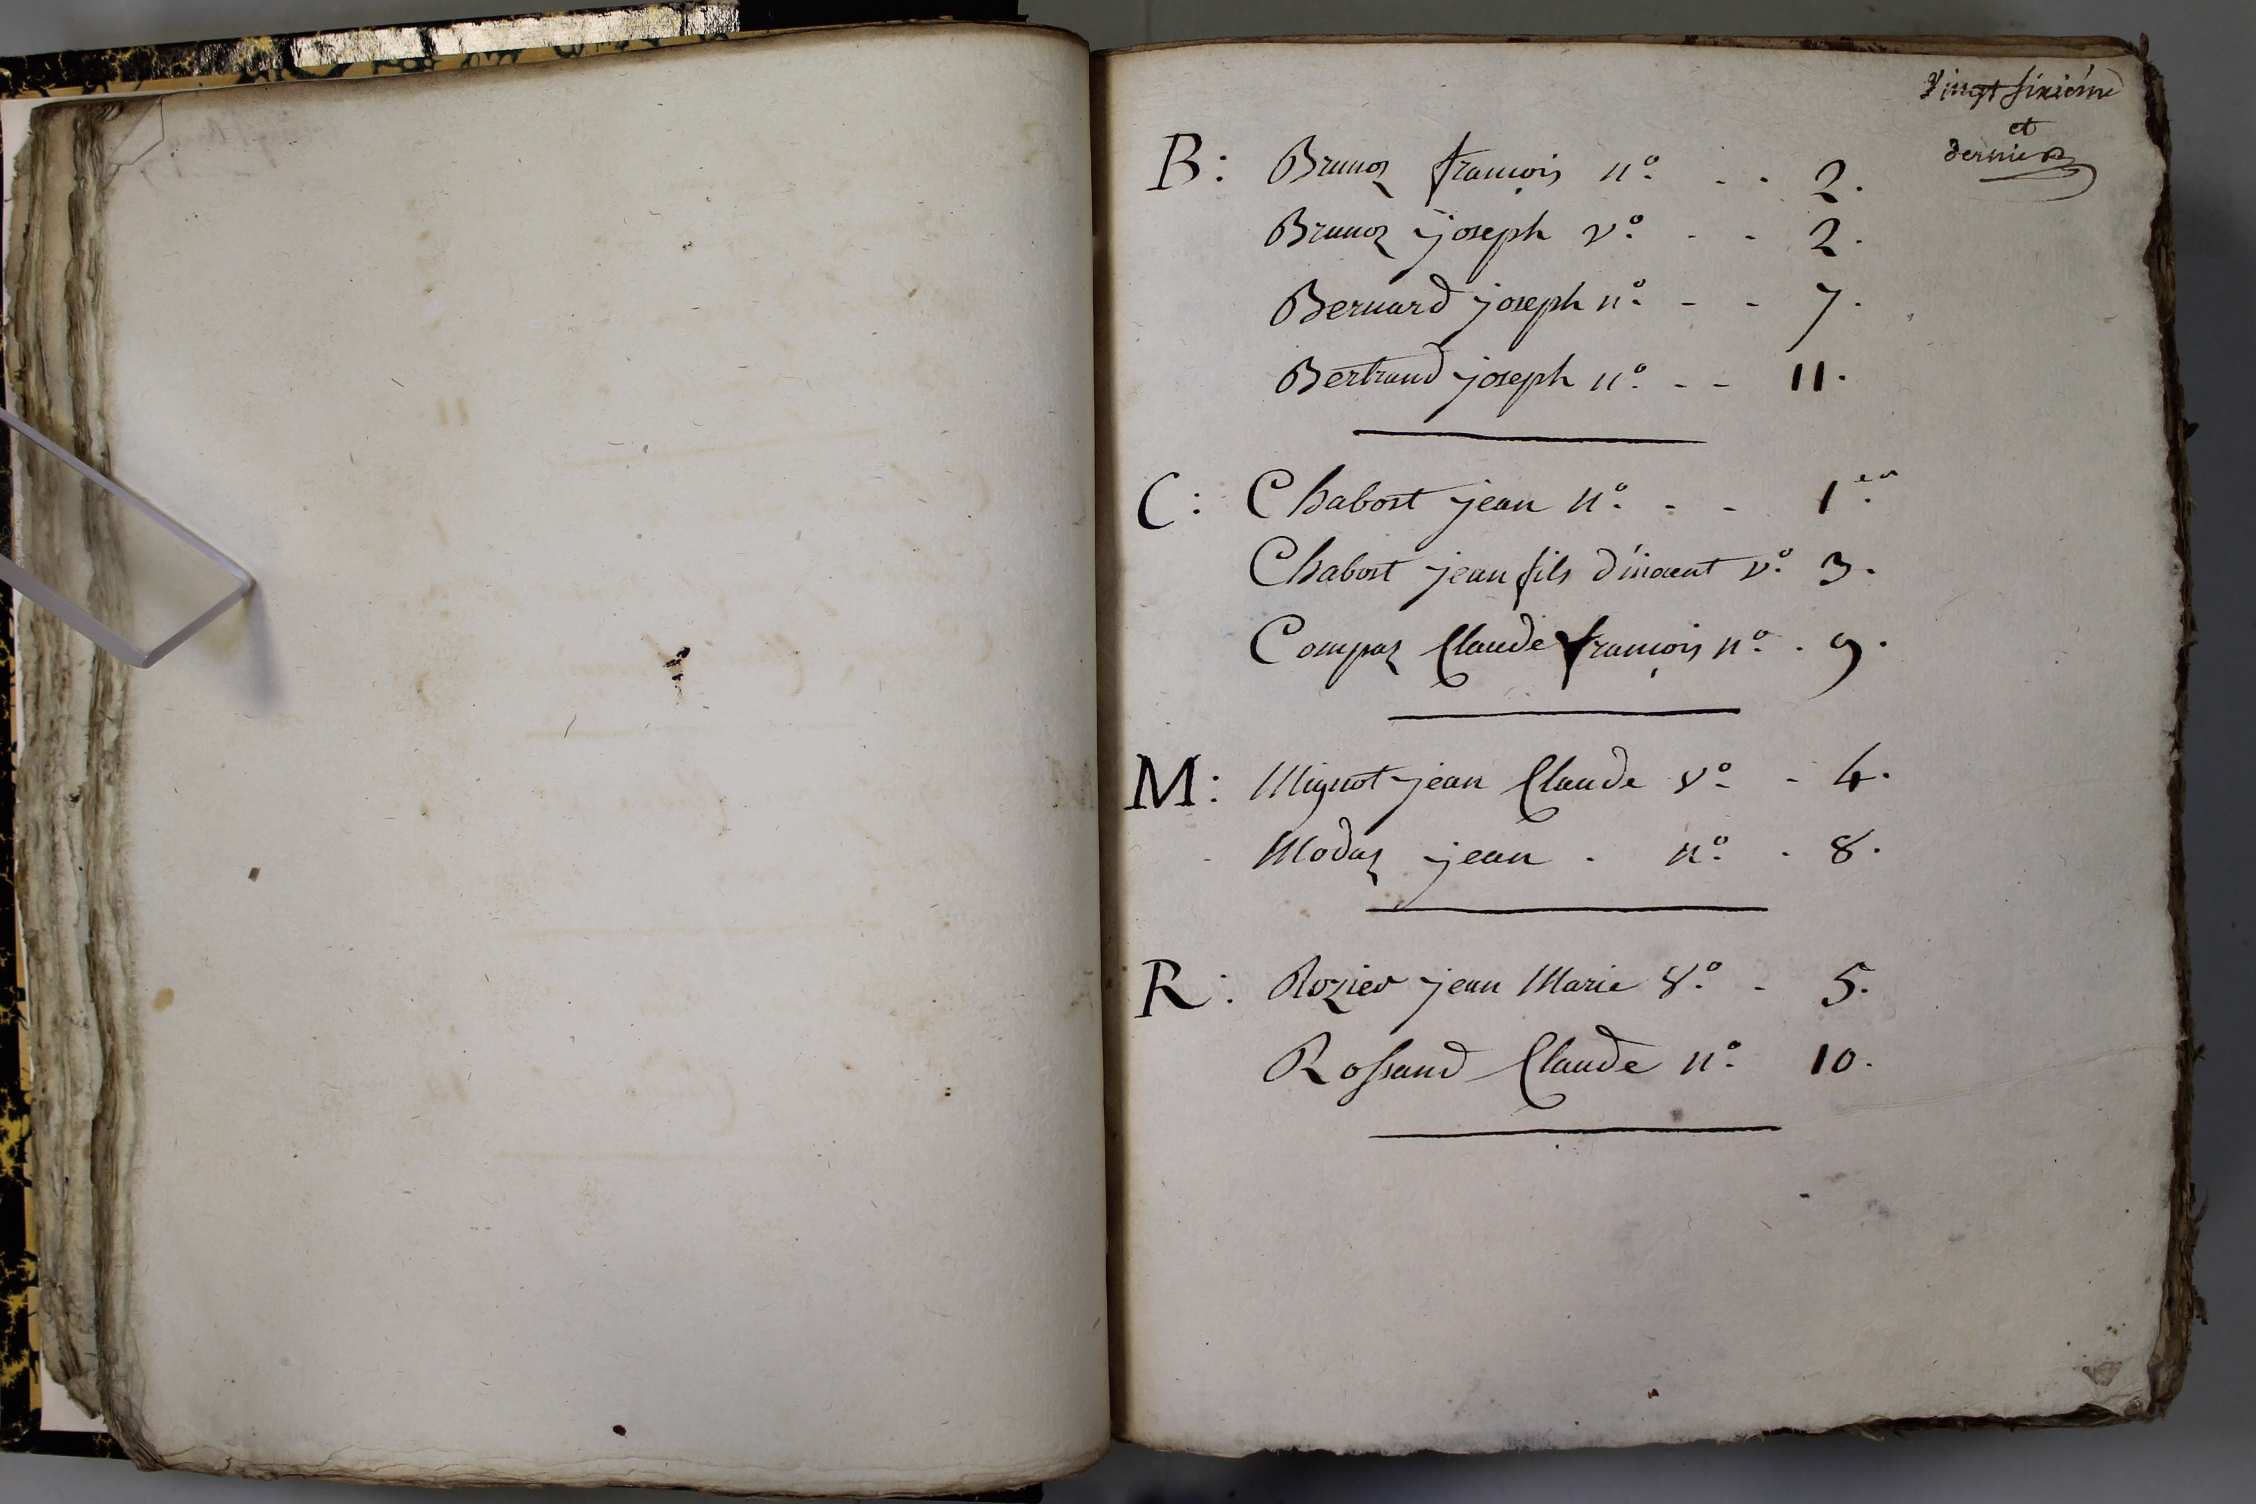 Vingt sixiéme
et
dernier
B: Brunoz françois n° . . 2.
Brunoz joseph v° - - 2.
Bernard joseph n° - - 7.
Bertrand joseph n° - - 11.
C: Chabost jean n° . - 1er
Chabost jean fils d'inocent v° 3.
Compaz Claude françois n° . 9.
M: Mignot jean Claude v° - 4.
Modaz jean . n° . 8.
R: Rozier jean Marie v° - 5.
Rossand Claude n° 10.